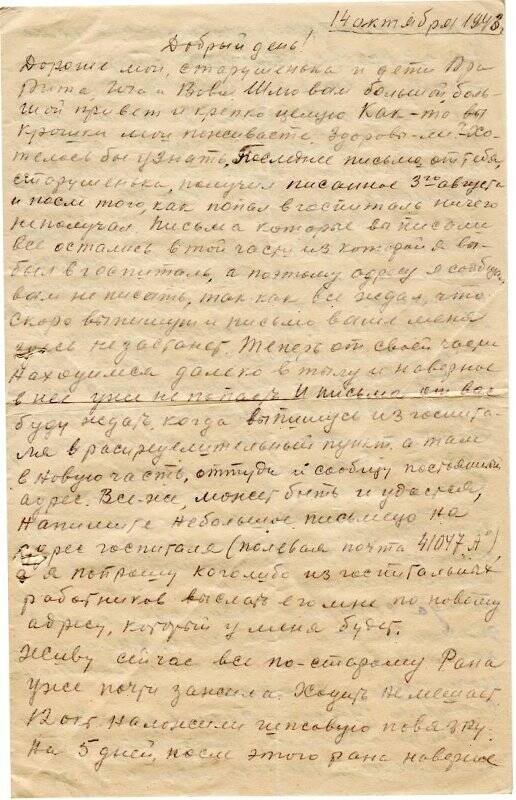 14 октября 1943.
Добрый день!
Дорогие мои, старушенька и дети
Рита и Вова Шлю вам большой боль-
шой привет и крепко целую Как-то вы
крошки мои поживаете. Здоровы-ли. Хо-
телось бы узнать. Последнее письмо, от тебя,
старушенька, получил писанное 3го августа
и после того, как попал в госпиталь ничего
неполучал. Письма которые вы писали
все остались в той части из которой я вы-
был в госпиталь, а поэтому адресу я сообщал
вам не писать, так как все ждал, что
скоро выпишут и письмо ваше меня
здесь не застанет. Теперь от своей части
находимся далеко в тылу и наверное
в нее уже не попасть И письма от вас
буду ждать, когда выпишусь из госпита-
ля в распределительный пункт, а там
в новую часть, оттуда и сообщу постоянный
адрес. Все-же, может быть и удастся,
напишите небольшое письмецо на
адрес госпиталя (полевая почта 41047 „А")
а я попрошу кого либо из госпитальных
работников выслать его мне по новому
адресу, который у меня будет.
Живу сейчас все по-старому Рана
уже почти зажила. Ходить не мешает
12 окт. наложили гипсовую повязку.
на 5 дней, после этого рана наверное